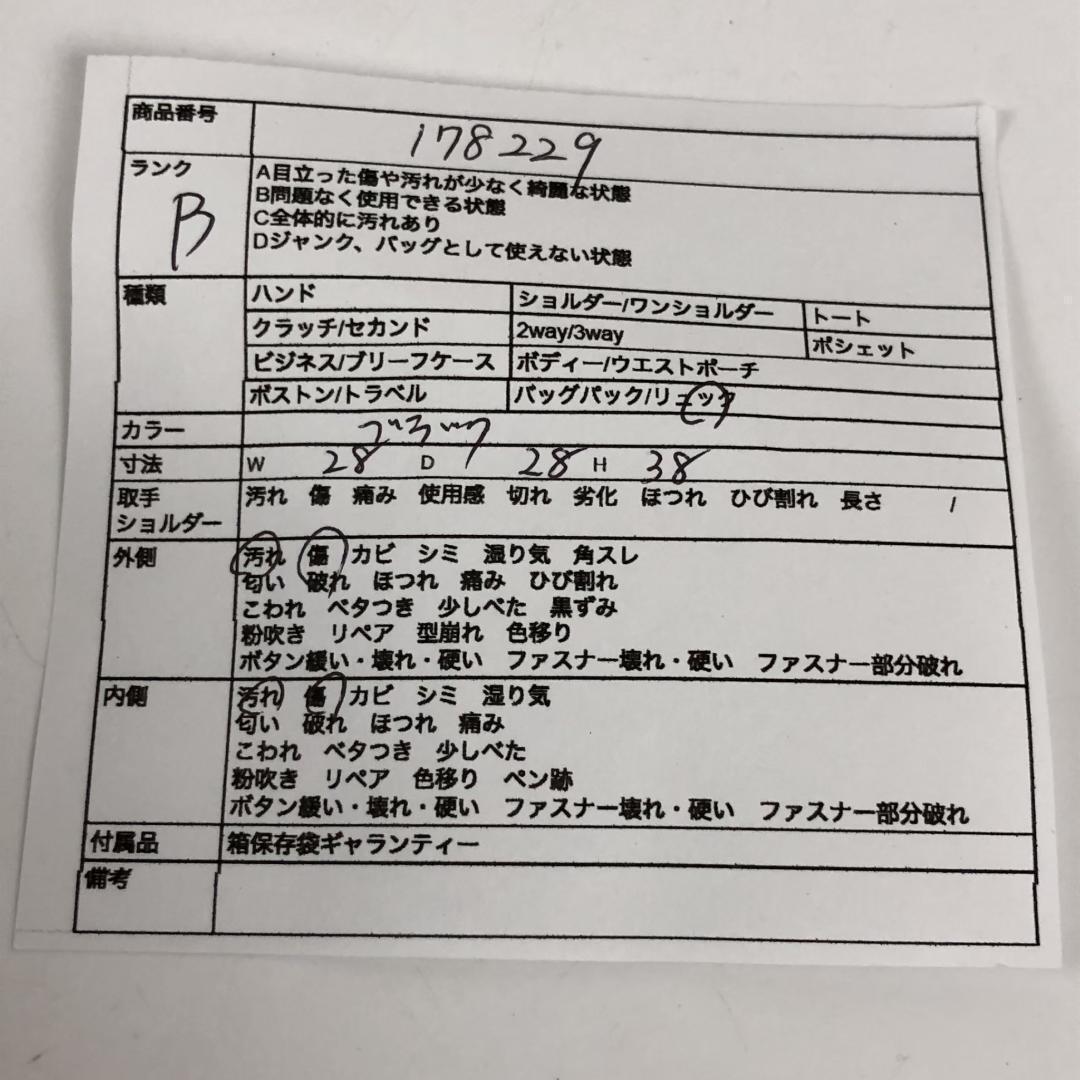 商品番号 178229
ランク B
A目立った傷や汚れが少なく綺麗な状態
B問題なく使用できる状態
C全体的に汚れあり
Dジャンク、バッグとして使えない状態
種類 ハンド ショルダー/ワンショルダー トート
クラッチ/セカンド 2way/3way ポシェット
ビジネス/ブリーフケース ボディー/ウエストポーチ
ボストン/トラベル バッグパック/リュック
カラー ブラック
寸法 W 28 D 28 H 38
取手 汚れ 傷 痛み 使用感 切れ 劣化 ほつれ ひび割れ 長さ /
ショルダー
外側 汚れ 傷 カビ シミ 湿り気 角スレ
匂い 破れ ほつれ 痛み ひび割れ
こわれ ベタつき 少しべた 黒ずみ
粉吹き リペア 型崩れ 色移り
ボタン緩い・壊れ・硬い ファスナー壊れ・硬い ファスナー部分破れ
内側 汚れ 傷 カビ シミ 湿り気
匂い 破れ ほつれ 痛み
こわれ ベタつき 少しべた
粉吹き リペア 色移り ペン跡
ボタン緩い・壊れ・硬い ファスナー壊れ・硬い ファスナー部分破れ
付属品 箱保存袋ギャランティー
備考